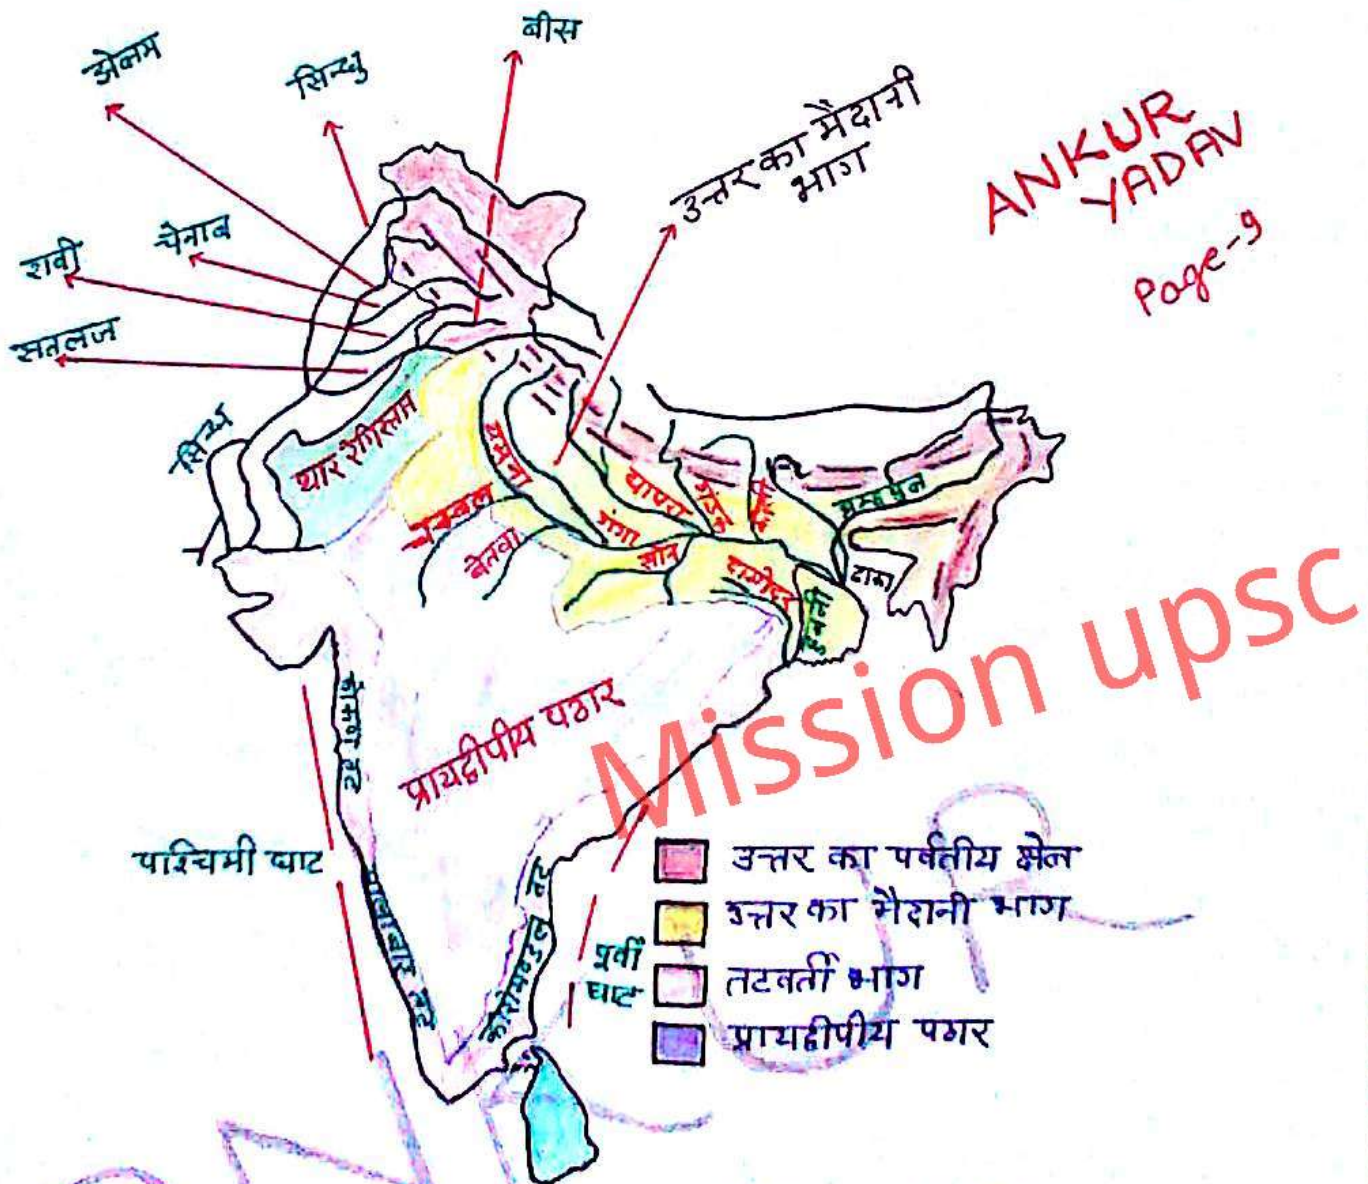 झेलम
सिन्धु
बीस
उत्तर का मैदानी
भाग
ANKUR
YADAV
Page-9
रावी
चेनाब
सतलज
सिन्ध
थार रेगिस्तान
यमुना
चम्बल
बेतवा
गंगा
घाघरा
गंडक
सोन
दामोदर
प्रायद्वीपीय पठार
Mission upsc
कोंकण तट
पश्चिमी घाट
मालाबार तट
कोरोमण्डल तट
पूर्वी
घाट
उत्तर का पर्वतीय क्षेत्र
उत्तर का मैदानी भाग
तटवर्ती भाग
प्रायद्वीपीय पठार